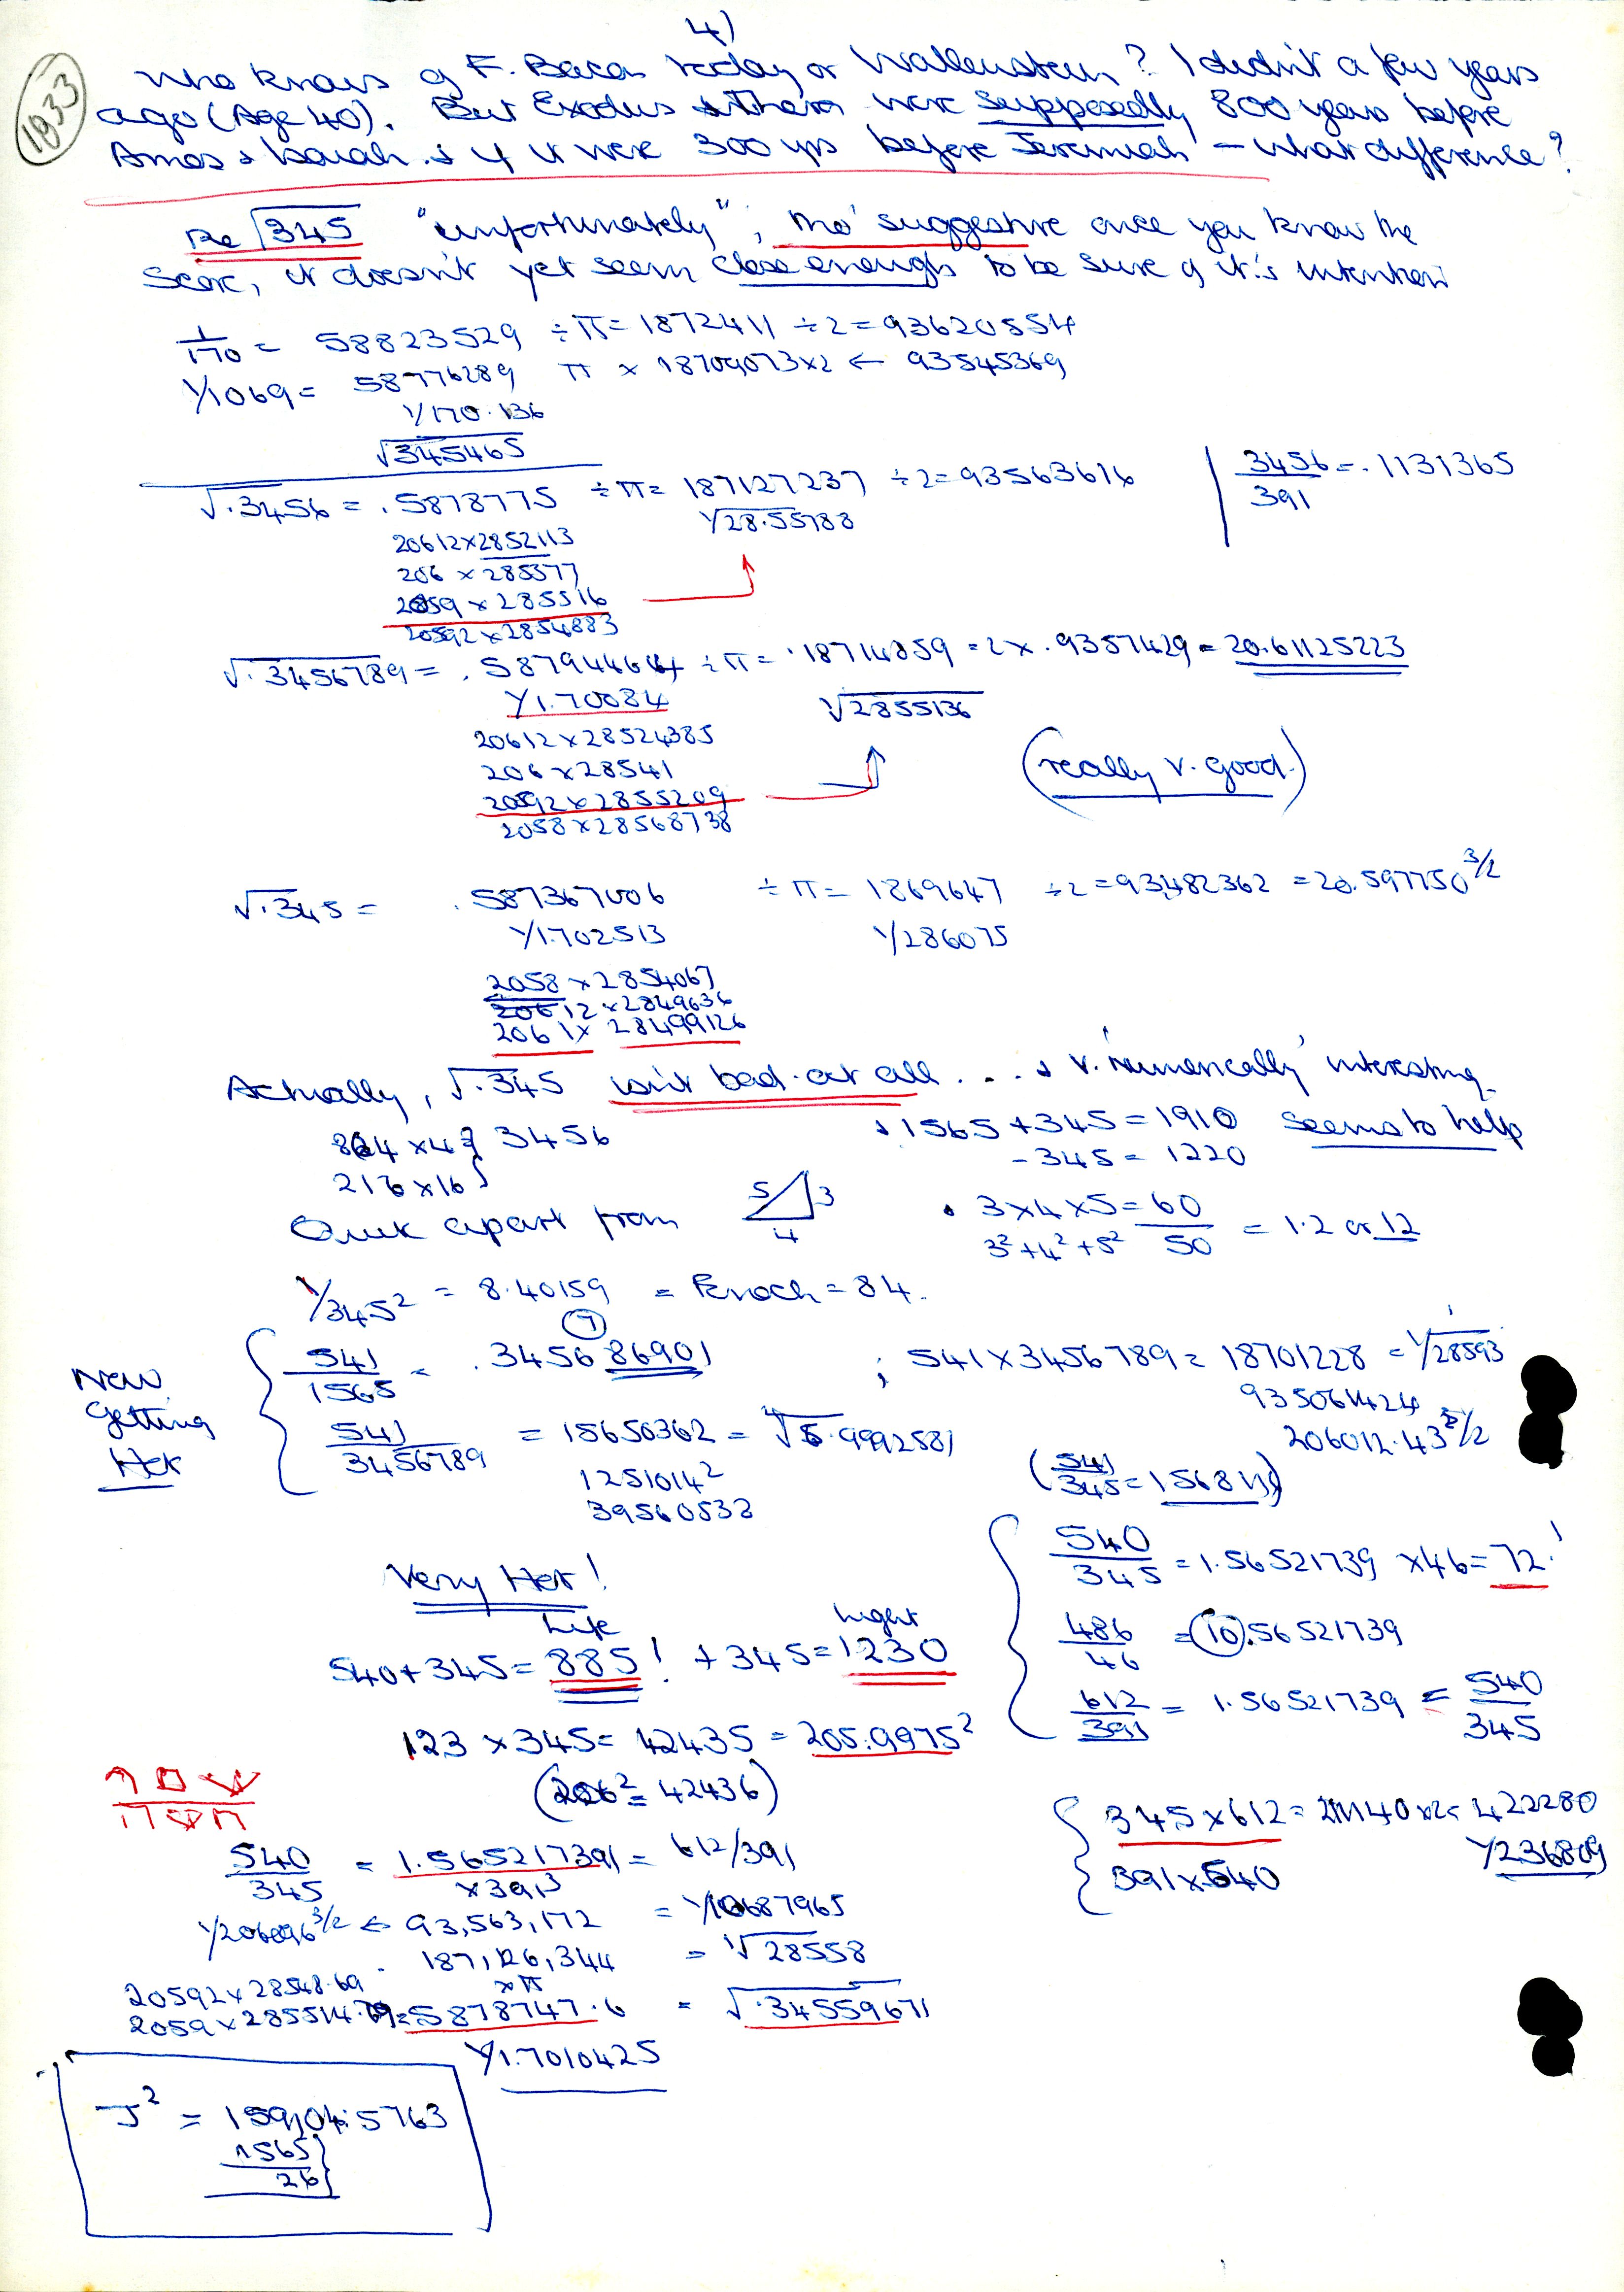 4)
1833
Who knows of F. Bacon today or Wallenstein? I didn't a few years
ago (Age 40). But Exodus & Thera were supposedly 800 years before
Amos & Isaiah. & if it were 300 yrs before Jeremiah - what difference?
Re √345 "unfortunately", tho' suggestive once you know the
score, it doesn't yet seem close enough to be sure of it's intention
1/170 = 58823529 ÷π= 1872411 ÷2=93620554
1/1069 = 58776289 π × 18709073×2 ← 93545369
1/170.136
√345465
√.3456 = .5878775 ÷π= 187127237 ÷2=93563616
1/√28.55788
3456/391 = .1131365
20612×2852113
206 × 285377
2059 × 285516
20592×2854883
√.3456789 = .587944644 ÷π= .18714859 =2×.9357429= 20.61125223
1/1.70084
1/√2855136
20612×28524385
206×28541
20592×2855209
2058×28568738
(really v. good.)
√.345 = .587367006 ÷π= 1869647 ÷2=93482362 =20.597750^3/2
1/1.702513 1/286075
2058×2854067
20612×2849636
2061× 28499126
Actually, √.345 isn't bad at all . . . & v. 'numerically' interesting
864 ×4 } 3456
216×16
& 1565+345=1910 seems to help
-345= 1220
Quite apart from 5 3 4
• 3×4×5=60
3²+4²+5² 50 = 1.2 or 12
1/345² = 8.40159 = Enoch=84.
Now Getting Hot
(7)
541/1565 = .345686901 ; 541×3456789= 18701228 = 1/√28593
935061424
206012.43^3/2
541/3456789 = 15650362 = ∜5.9992581
1251014²
39560532
(541/345=156811)
Very Hot!
540/345 = 1.56521739 ×46=72!
486/46 = (10).56521739
612/391 = 1.56521739 = 540/345
Life Light
540+345=885! +345=1230
123 ×345= 42435 = 205.9975²
(206²= 42436)
345×612= 211140×2= 422280
1/236809
391×540
540/345 = 1.565217391= 612/391
×3913
1/206096^3/2 ← 93,563,172 = 1/10687965
187,126,344 = 1/√28558
×π
20592×28548.69
2059×285514.79=5878747.6 = √.34559671
1/1.7010425
J² = 159,04.5763
1565
26